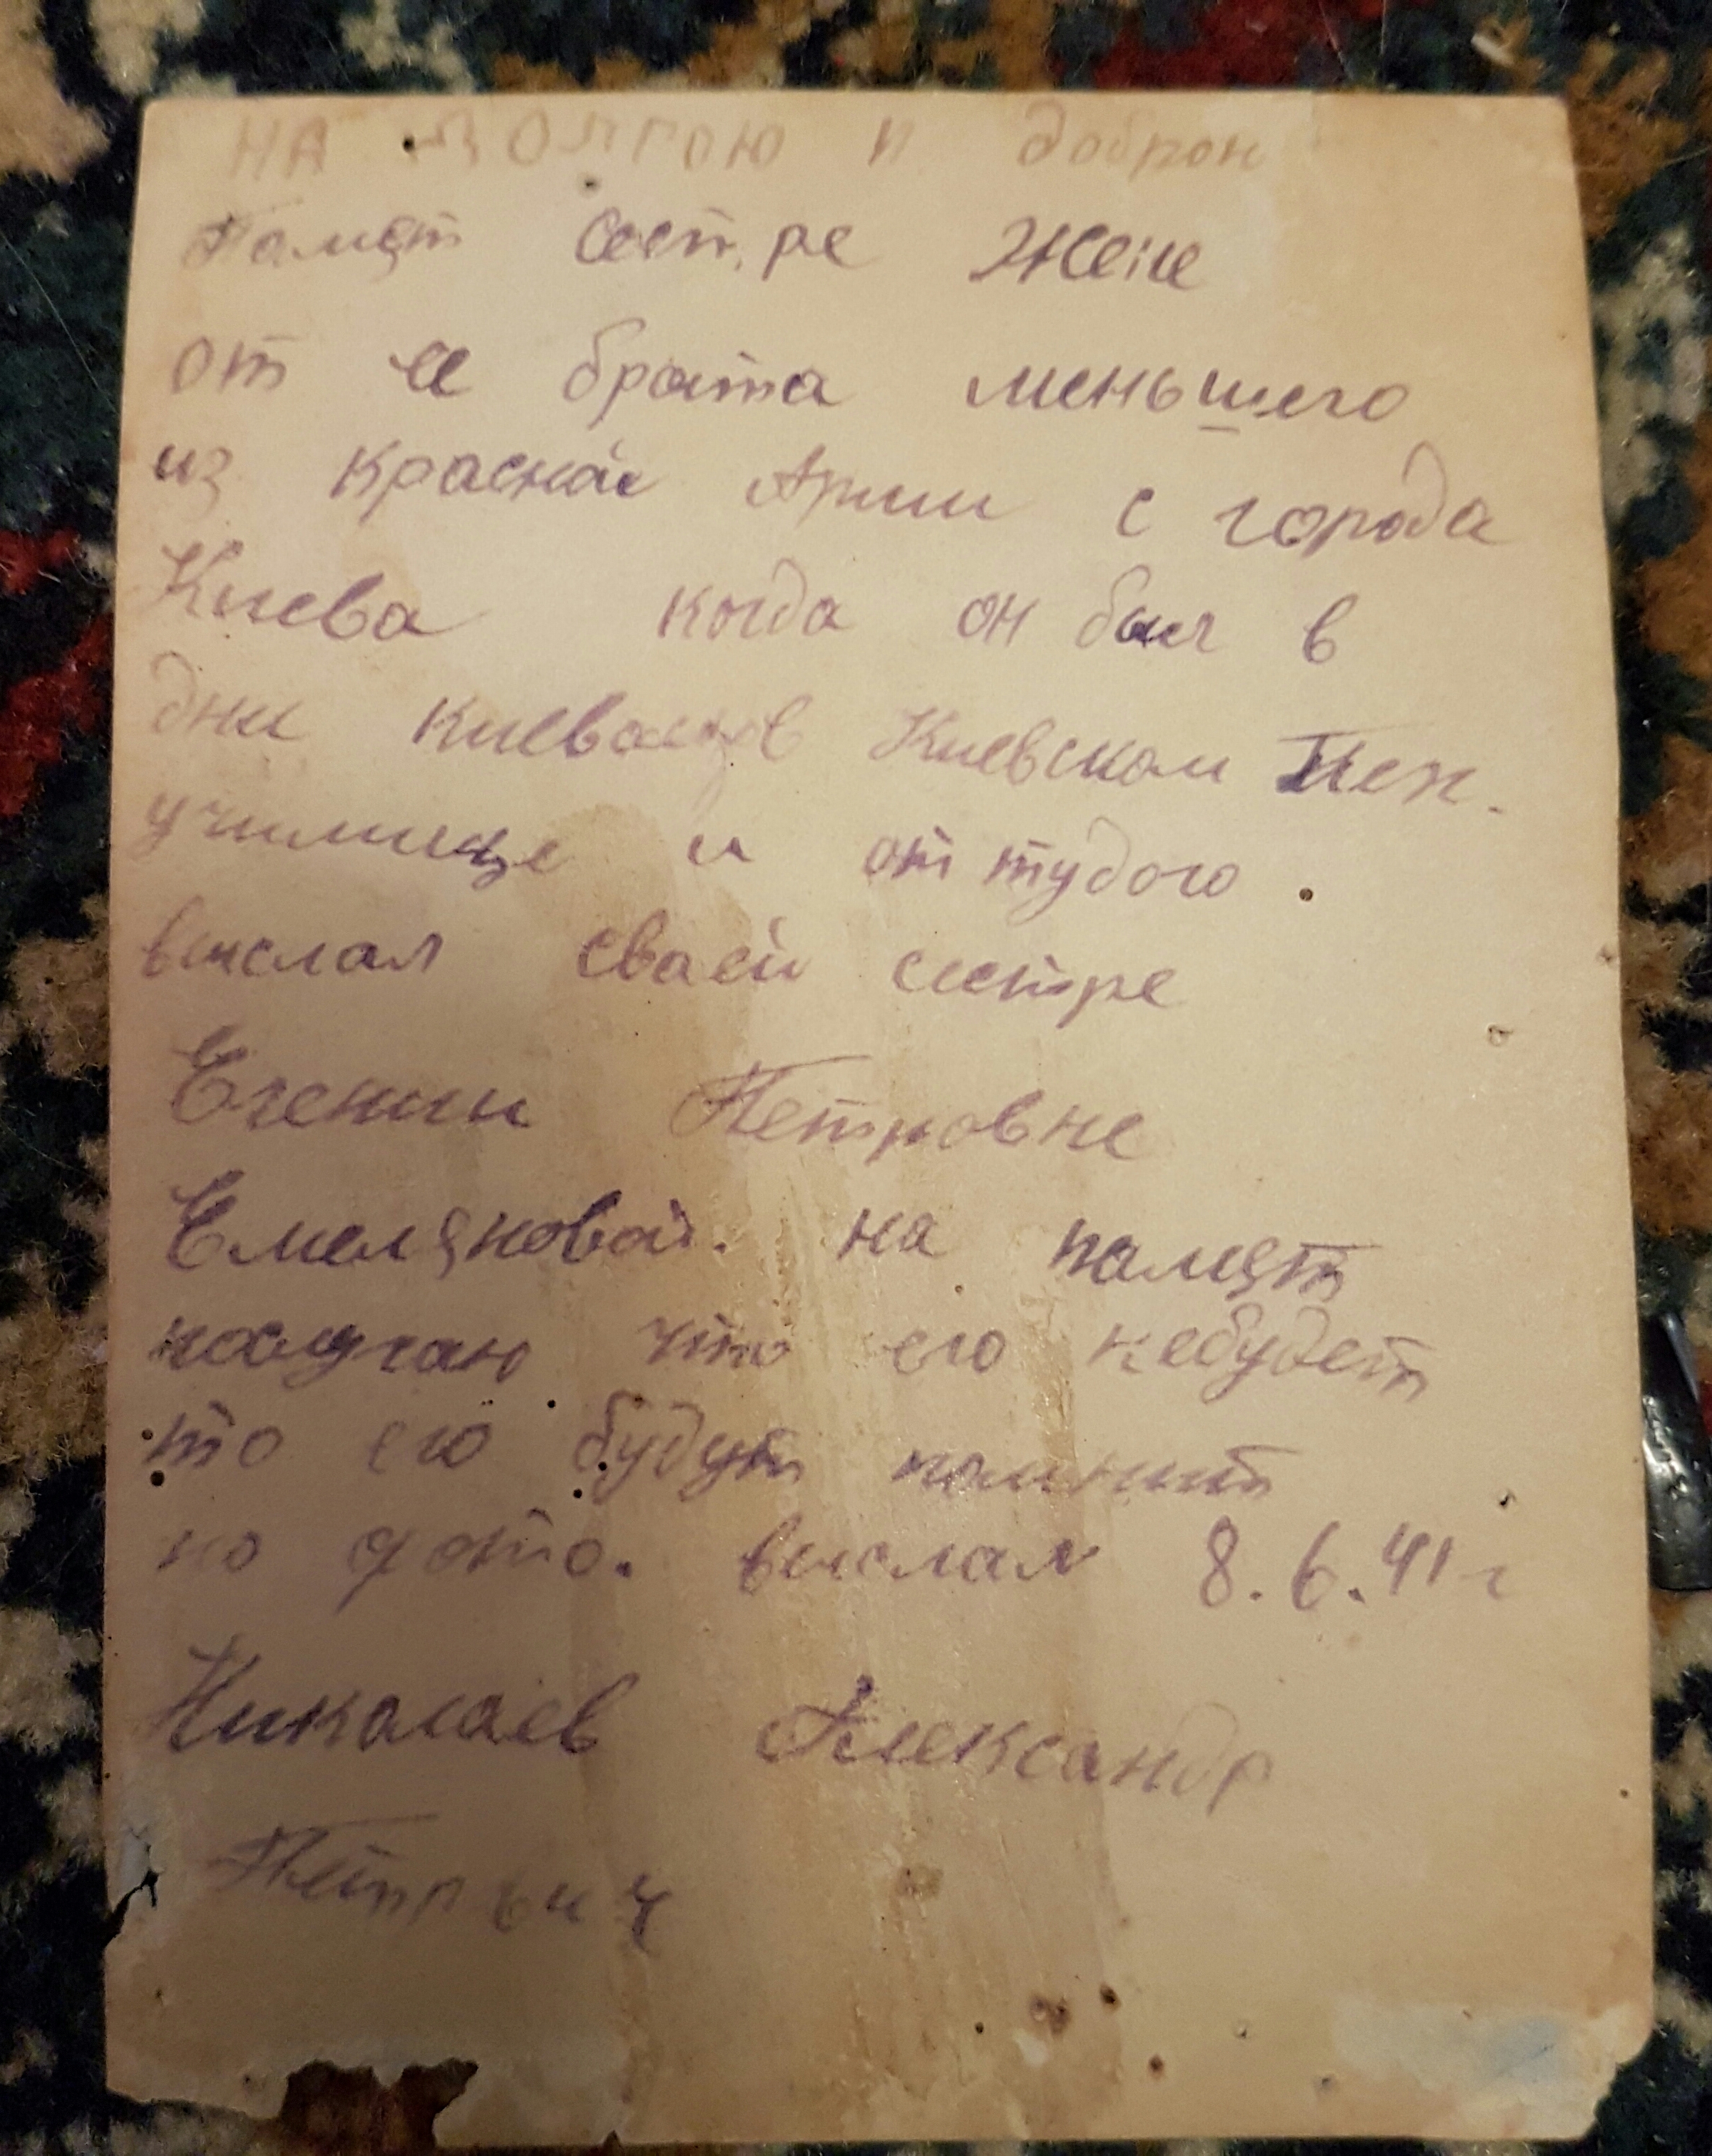 НА ДОЛГОЮ И доброю
Памят сестре Жене
от ее брата меньшего
из красной Армии с города
Киева когда он был в
дни Киевском Пех.
училище и оттудого
выслал сваей сестре
Егении Петровне
Емеляновай. на памят
что его небудет
то его будут помнит
по фото. выслал 8.6.41 г
Николаев Александр
Петрвич